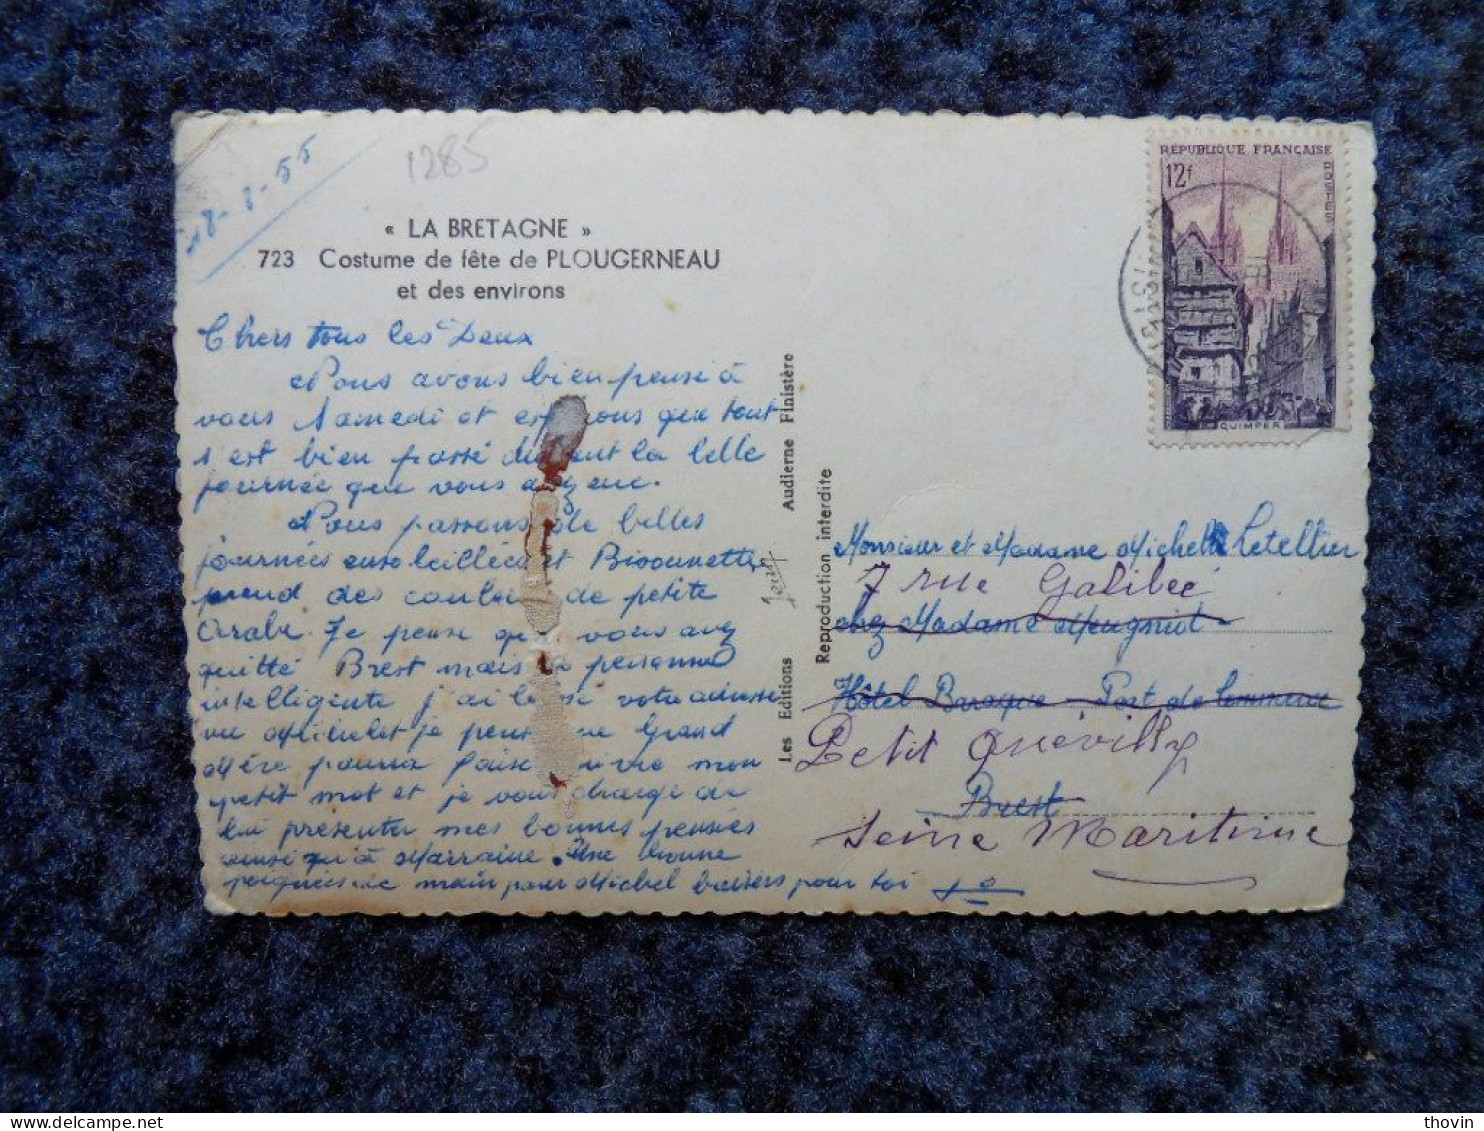 18-8-55
1285
« LA BRETAGNE »
723 Costume de fête de PLOUGERNEAU
et des environs
Chers tous les Deux
Nous avons bien pensé à
vous Samedi et esp ons que tout
s'est bien passé du ant la belle
journée que vous a ez eue.
Nous passons de belles
journées ensoleillées et Bisounette
prend des couleu de petite
Arabe. Je pense que vous avez
quitté Brest mais la personne
intelligente j'ai laissé votre adresse
au Michelet je pense que Grand
Mère pourra faire suivre mon
petit mot et je vous charge de
lui présenter mes bonnes pensées
ainsi qu'à Marraine. Une bonne
poignées de main pour Michel baisers pour toi Jo
Les Editions Jean Audierne Finistère
Reproduction interdite
RÉPUBLIQUE FRANÇAISE
12f
POSTES
QUIMPER
Monsieur et Madame Michel Letellier
7 rue Galibée
chez Madame Meugniot
Hôtel Baraque - Port de Commerce
Petit Quévilly
Brest
Seine Maritime
thovin